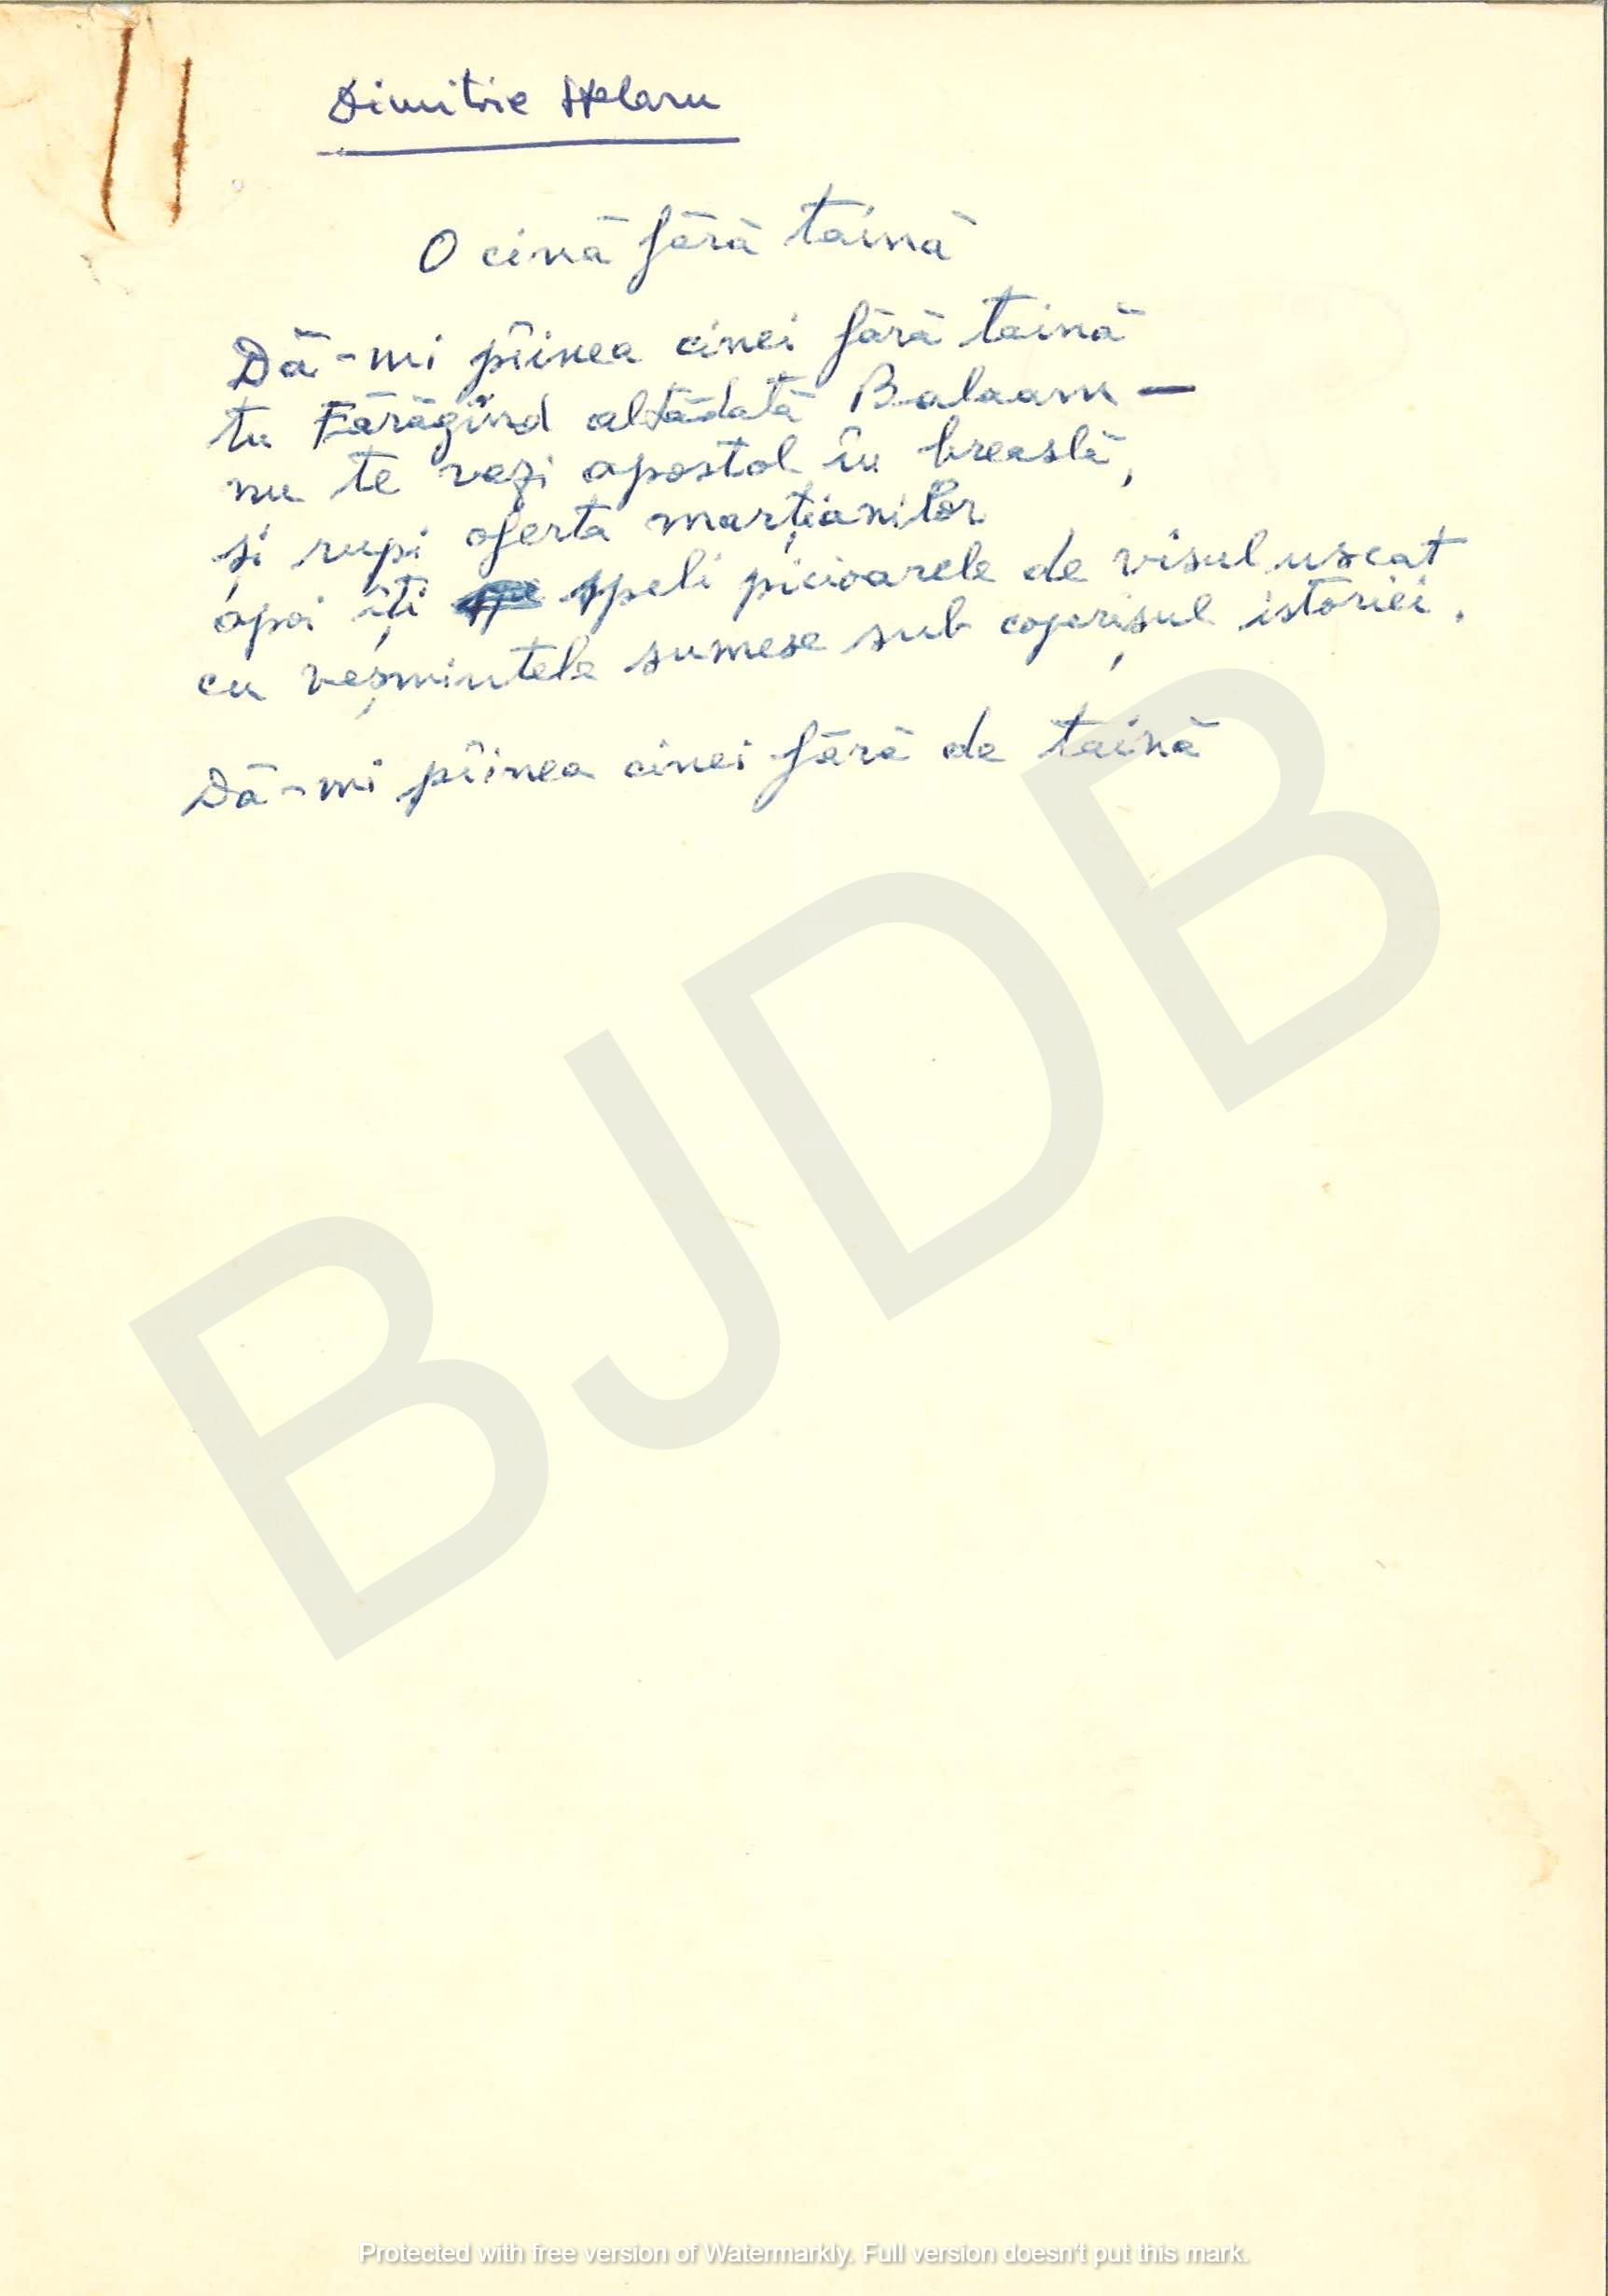 Dimitrie Stelaru
O cină fără taină
Dă-mi pîinea cinei fără taină
tu Fărăgînd altădată Balaam —
nu te vezi apostol în breaslă,
și rupi oferta marțianilor
apoi îți speli picioarele de visul uscat
cu veșmintele sumese sub coperișul istoriei.
Dă-mi pîinea cinei fără de taină
BJDB
Protected with free version of Watermarkly. Full version doesn't put this mark.